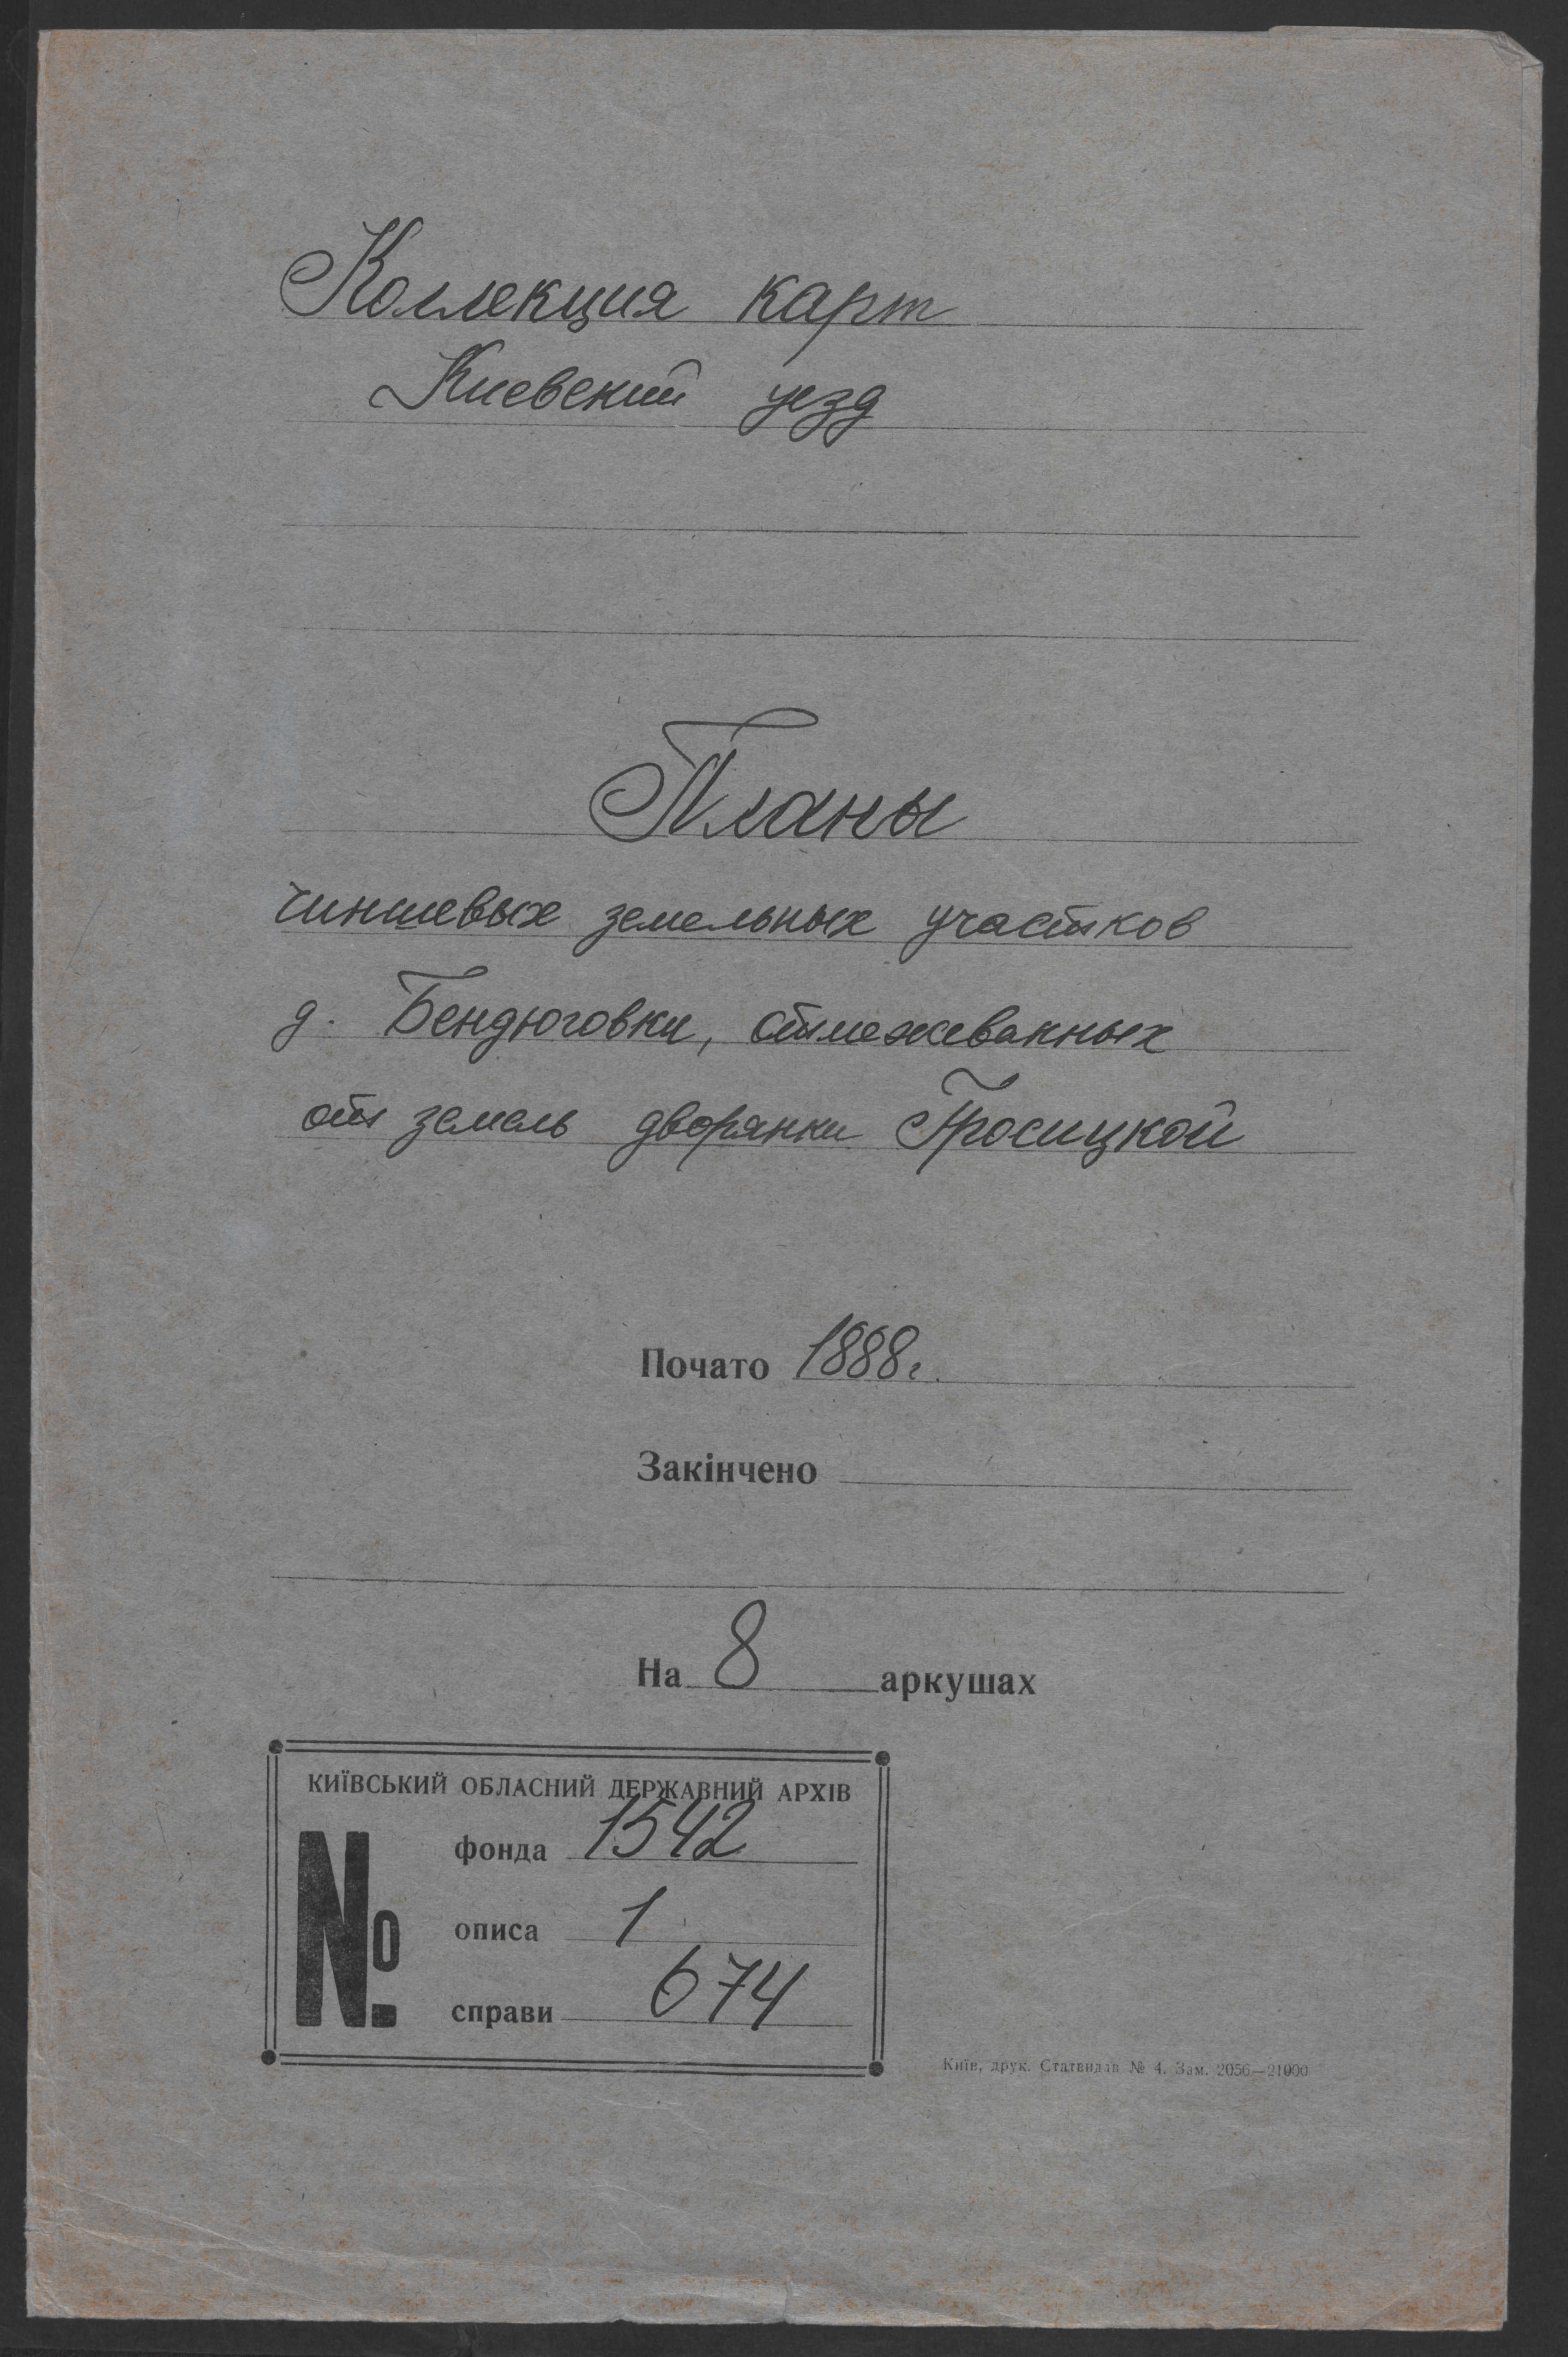 Коллекция карт
Киевский уезд
Планы
чиншевых земельных участков
д. Бендюговки, отмежеванных
от земель дворянки Тросицкой
Почато 1888г.
Закінчено
На 8 аркушах
КИЇВСЬКИЙ ОБЛАСНИЙ ДЕРЖАВНИЙ АРХІВ
№
фонда 1542
описа 1
справи 674
Київ, друк. Статвидав № 4. Зам. 2056—21000